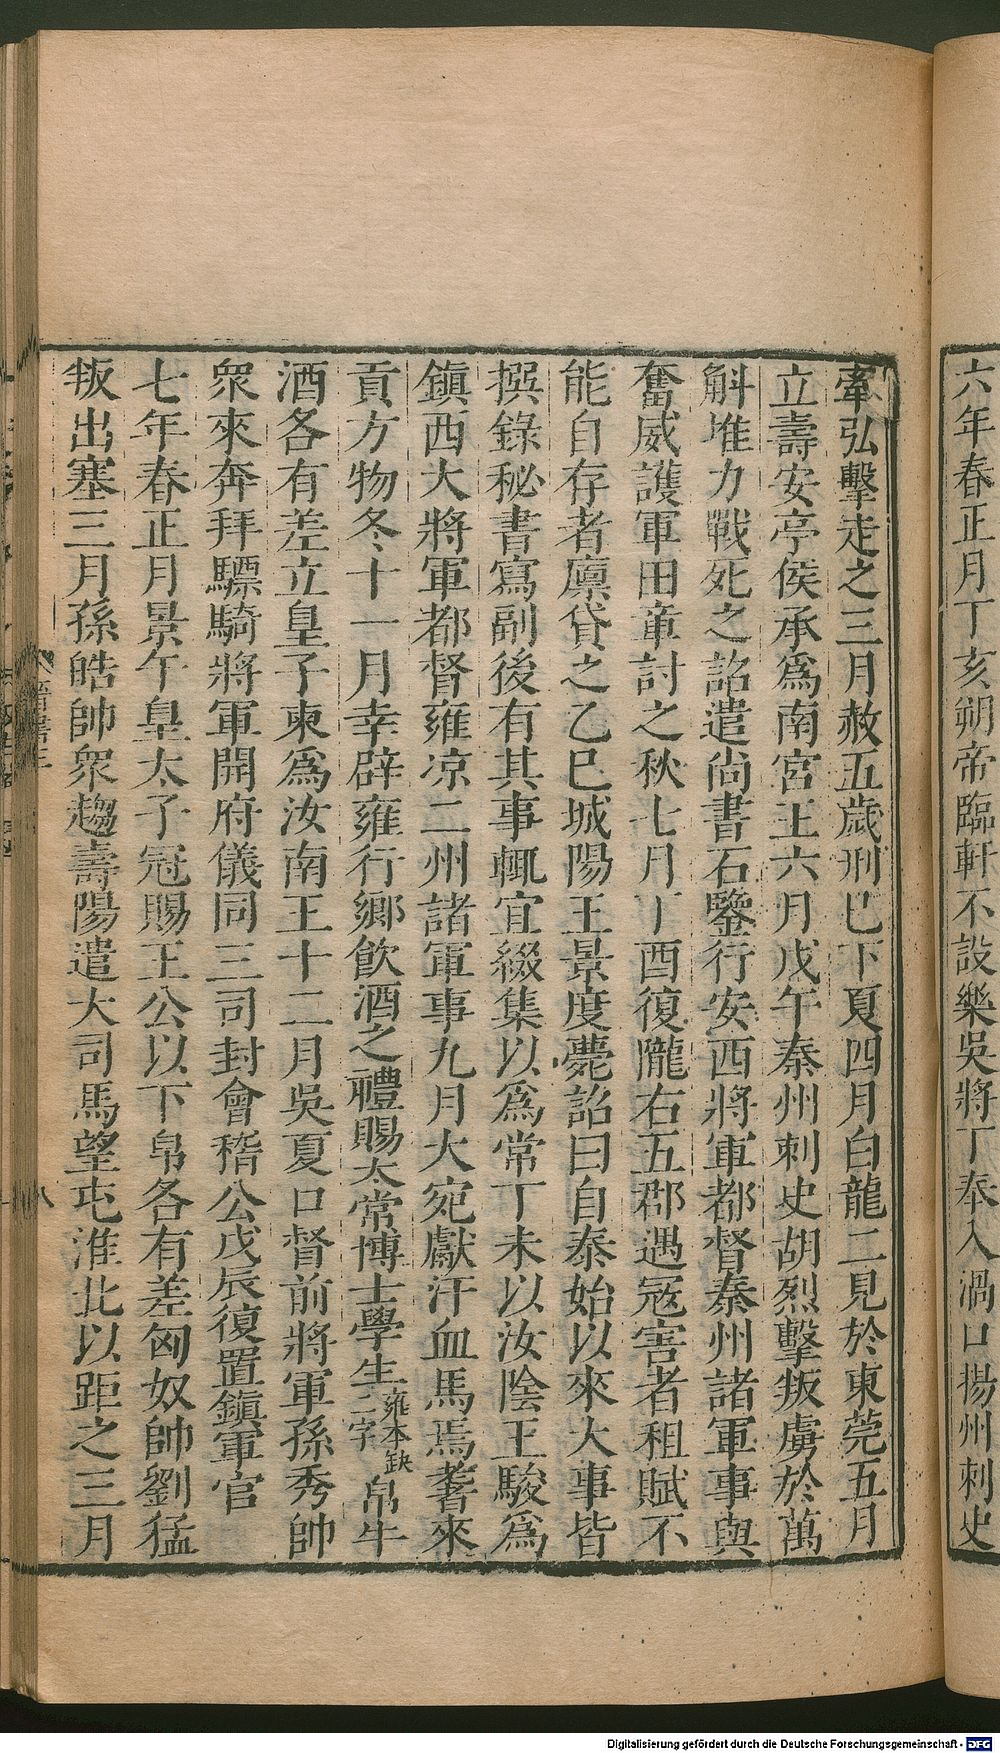 六年春正月丁亥朔帝臨軒不設樂吳將丁奉入渦口揚州刺史
牽弘擊走之三月赦五歲刑已下夏四月白龍二見於東莞五月
立壽安亭侯承爲南宮王六月戊午秦州刺史胡烈擊叛虜於萬
斛堆力戰死之詔遣尚書石鑒行安西將軍都督秦州諸軍事與
奮威護軍田章討之秋七月丁酉復隴右五郡遇寇害者租賦不
能自存者廩貸之乙巳城陽王景度薨詔曰自泰始以來大事皆
撰錄秘書寫副後有其事輒宜綴集以爲常丁未以汝陰王駿爲
鎭西大將軍都督雍凉二州諸軍事九月大宛獻汗血馬焉耆來
貢方物冬十一月幸辟雍行鄉飮酒之禮賜太常博士學生二字雍本缺帛牛
酒各有差立皇子東爲汝南王十二月吳夏口督前將軍孫秀帥
衆來奔拜驃騎將軍開府儀同三司封會稽公戊辰復置鎭軍官
七年春正月景午皇太子冠賜王公以下帛各有差匈奴帥劉猛
叛出塞三月孫皓帥衆趨壽陽遣大司馬望屯淮北以距之三月
晉書三
八
Digitalisierung gefördert durch die Deutsche Forschungsgemeinschaft - DFG